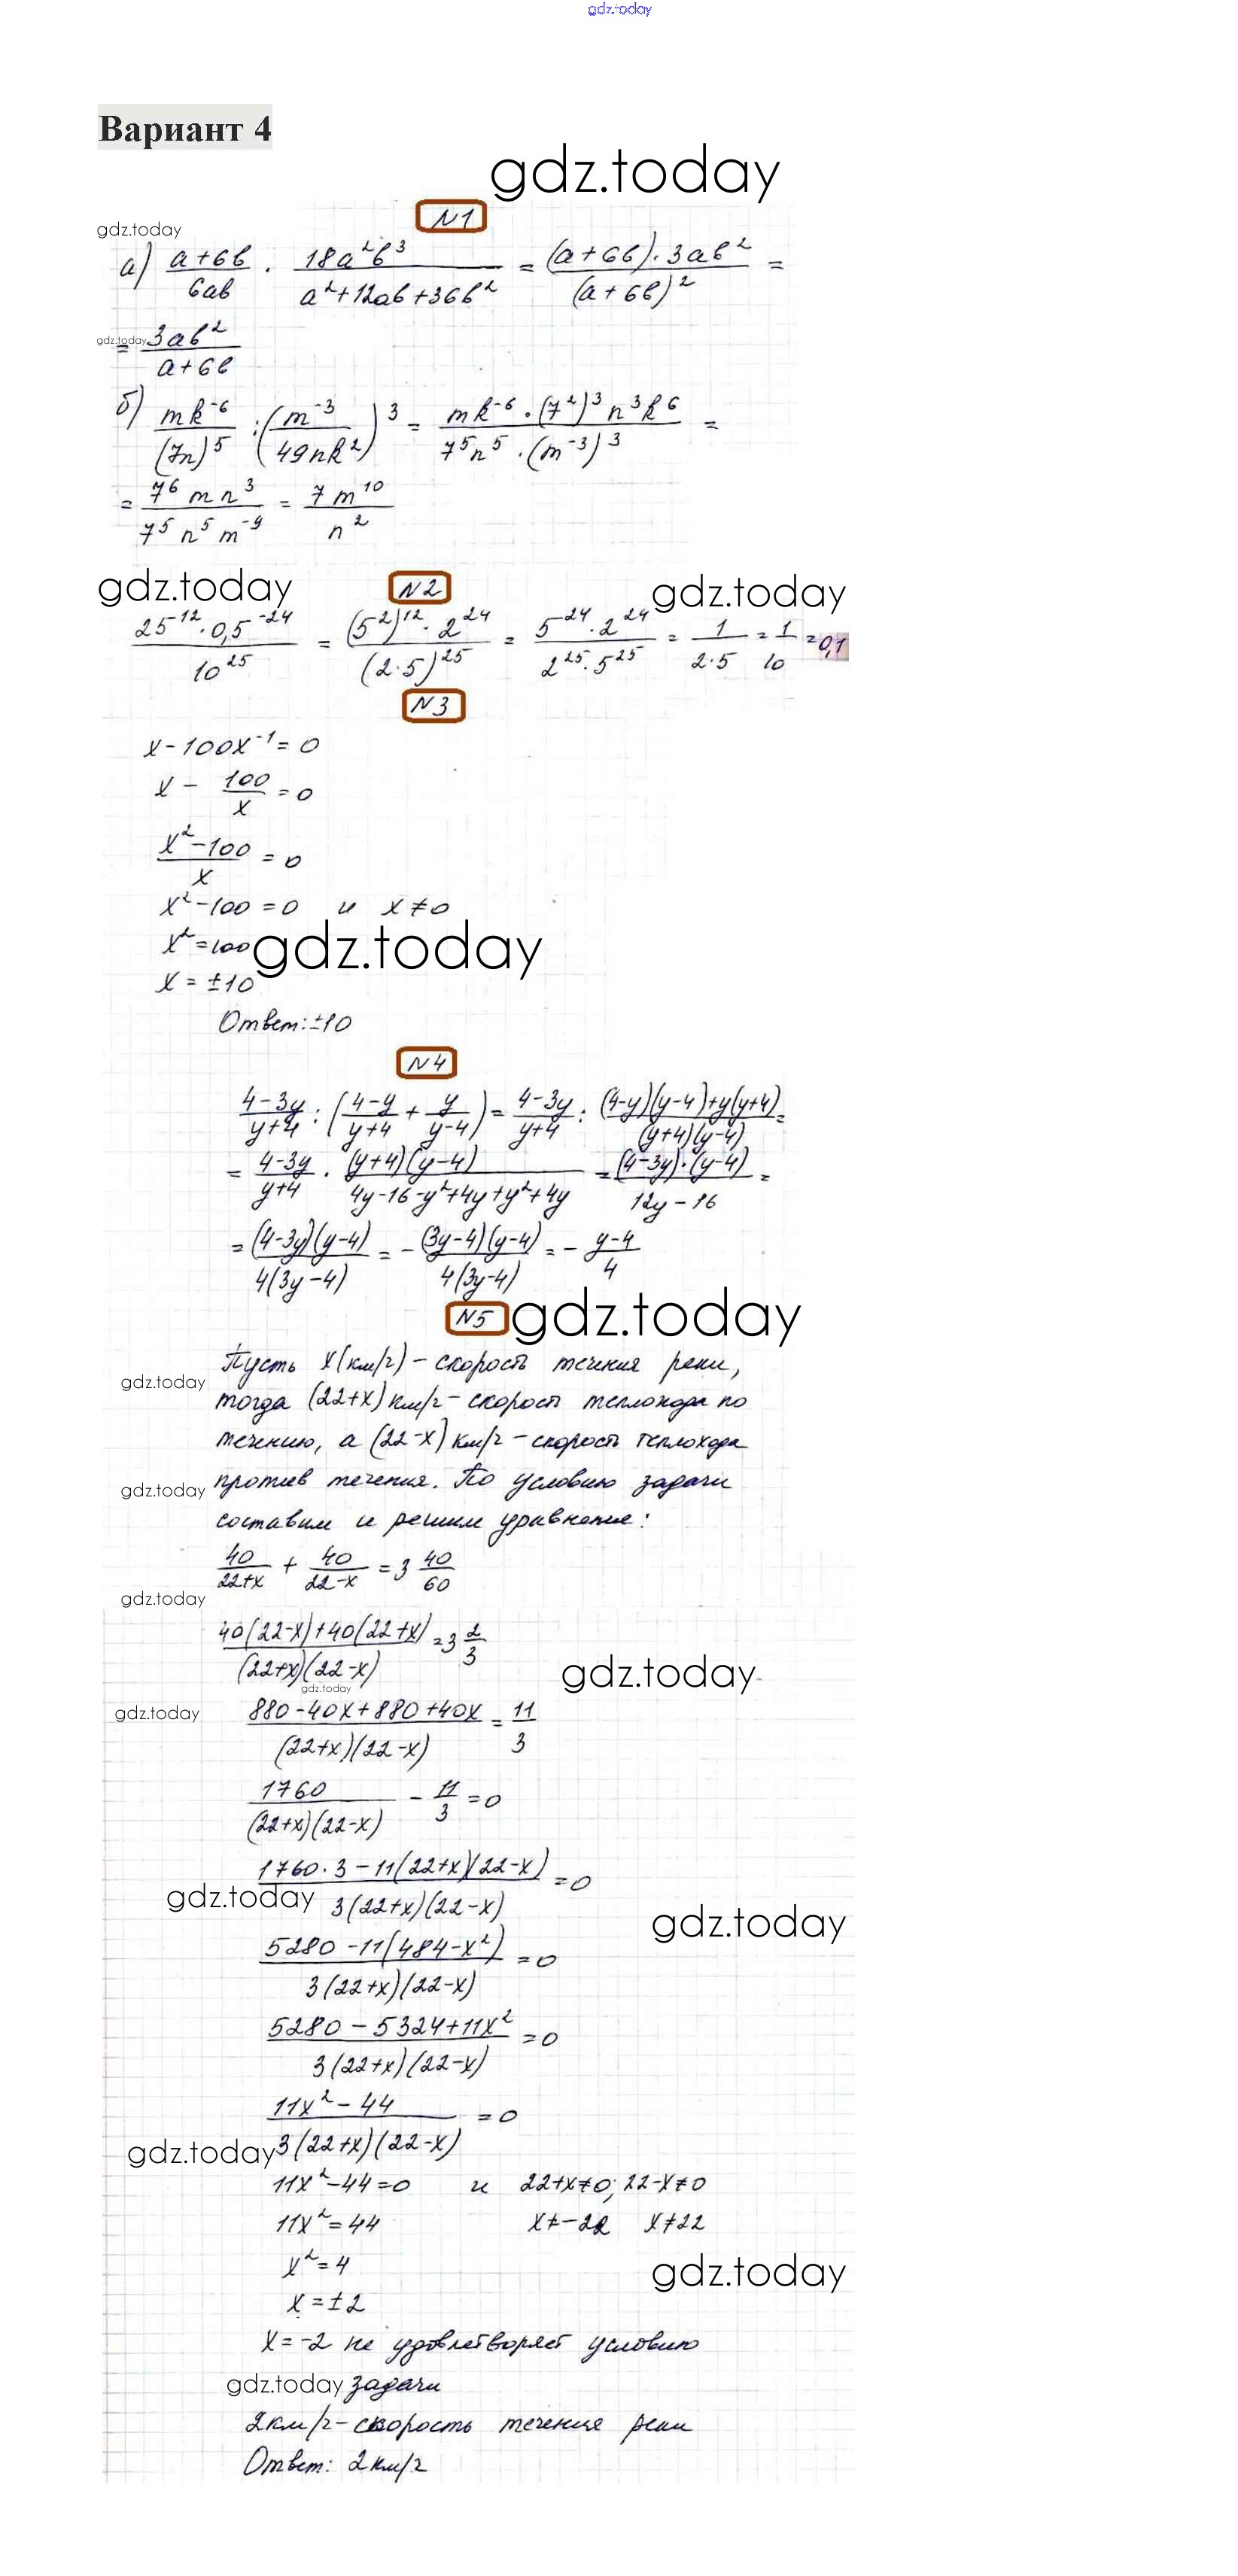 gdz.today
Вариант 4
gdz.today
N1
gdz.today
а) (a+6b)/(6ab) · (18a²b³)/(a²+12ab+36b²) = ((a+6b)·3ab²)/((a+6b)²) =
gdz.today
= (3ab²)/(a+6b)
б) (mk⁻⁶)/((7n)⁵) : ((m⁻³)/(49nk²))³ = (mk⁻⁶·(7²)³n³k⁶)/(7⁵n⁵·(m⁻³)³) =
= (7⁶mn³)/(7⁵n⁵m⁻⁹) = (7m¹⁰)/(n²)
gdz.today N2 gdz.today
(25⁻¹²·0,5⁻²⁴)/(10²⁵) = ((5²)¹²·2²⁴)/((2·5)²⁵) = (5²⁴·2²⁴)/(2²⁵·5²⁵) = 1/(2·5) = 1/10 = 0,1
N3
x-100x⁻¹=0
x - 100/x = 0
(x²-100)/x = 0
x²-100=0 и x≠0
x²=100
gdz.today
x=±10
Ответ: ±10
N4
(4-3y)/(y+4) : ((4-y)/(y+4) + y/(y-4)) = (4-3y)/(y+4) : ((4-y)(y-4)+y(y+4))/((y+4)(y-4)) =
= (4-3y)/(y+4) · ((y+4)(y-4))/(4y-16-y²+4y+y²+4y) = ((4-3y)·(y-4))/(12y-16) =
= ((4-3y)(y-4))/(4(3y-4)) = -((3y-4)(y-4))/(4(3y-4)) = -(y-4)/4
N5 gdz.today
Пусть x(км/ч) - скорость течения реки,
gdz.today
тогда (22+x) км/ч - скорость теплохода по
течению, а (22-x) км/ч - скорость теплохода
против течения. По условию задачи
gdz.today
составим и решим уравнение:
40/(22+x) + 40/(22-x) = 3 40/60
gdz.today
(40(22-x)+40(22+x))/((22+x)(22-x)) = 3 2/3
gdz.today
gdz.today
gdz.today
(880-40x+880+40x)/((22+x)(22-x)) = 11/3
1760/((22+x)(22-x)) - 11/3 = 0
(1760·3-11(22+x)(22-x))/(3(22+x)(22-x)) = 0
gdz.today
gdz.today
(5280-11(484-x²))/(3(22+x)(22-x)) = 0
(5280-5324+11x²)/(3(22+x)(22-x)) = 0
(11x²-44)/(3(22+x)(22-x)) = 0
gdz.today
11x²-44=0 и 22+x≠0; 22-x≠0
11x²=44 x≠-22 x≠22
x²=4
gdz.today
x=±2
x=-2 не удовлетворяет условию
gdz.today задачи
2км/ч-скорость течения реки
Ответ: 2км/ч